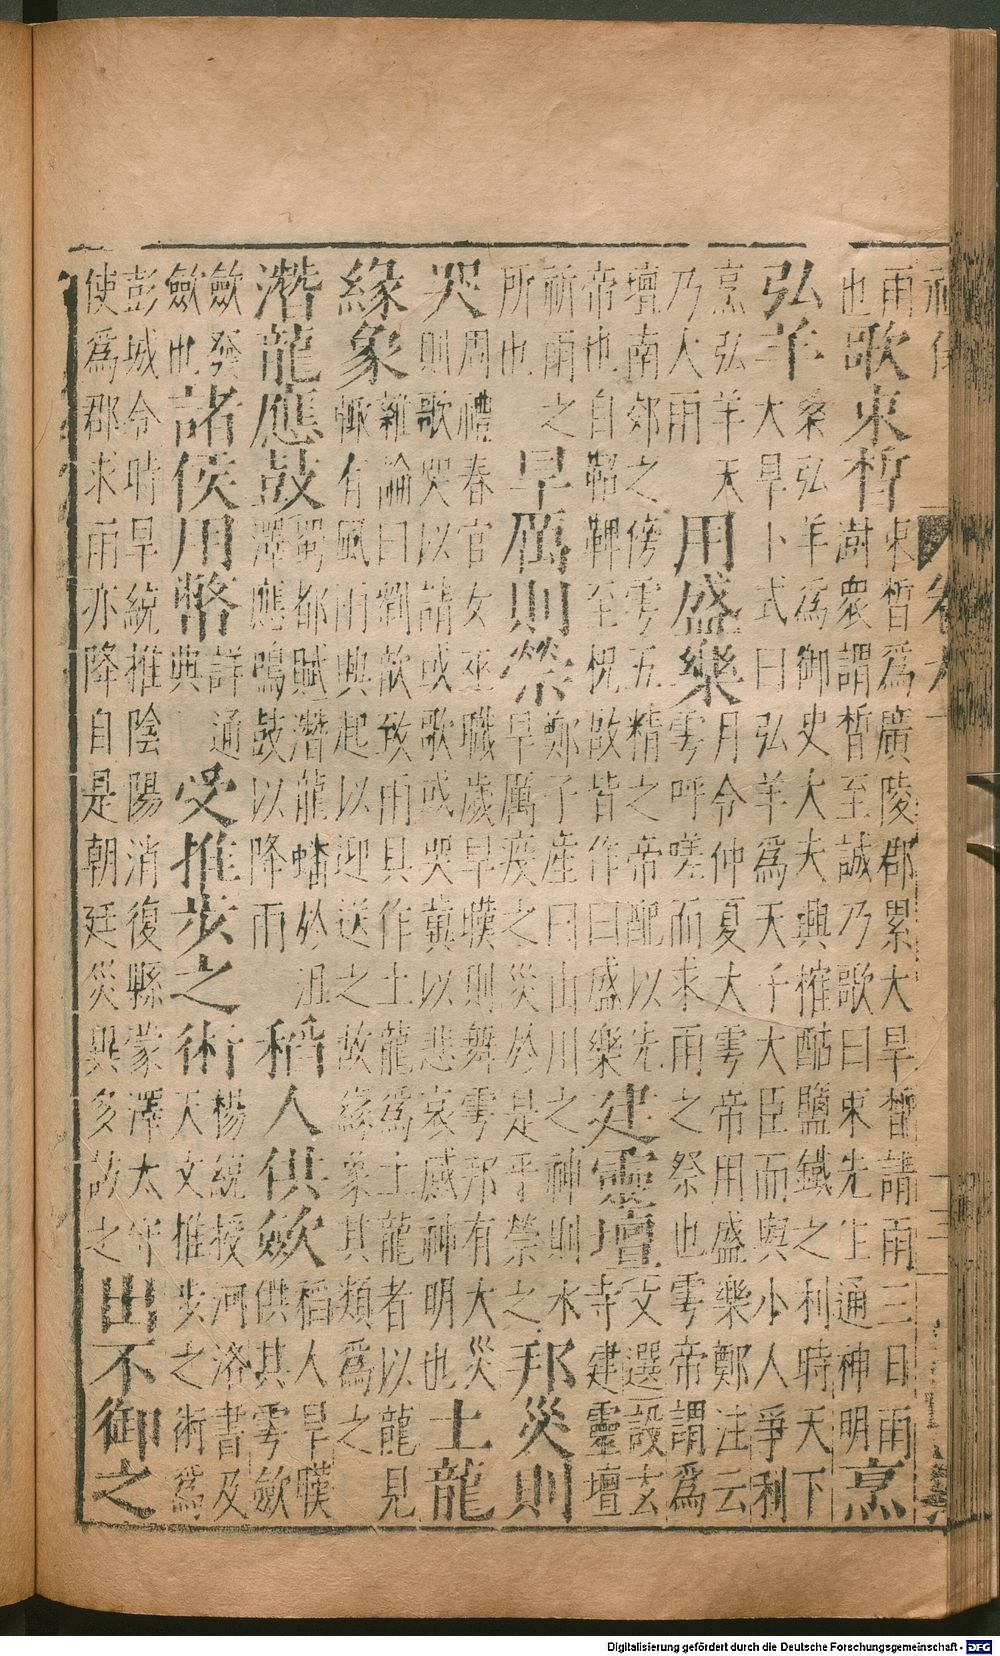 雨
也
歌束晳
束晳為廣陵郡累大旱晳請雨三日雨
澍衆謂晳至誠乃歌曰束先生通神明
烹
弘羊
桑弘羊為御史大夫興榷酤鹽鐵之利時天下
大旱卜式曰弘羊為天子大臣而與小人爭利
烹弘羊天
乃人雨
用盛樂
月令仲夏大雩帝用盛樂鄭注云
雩呼嗟而求雨之祭也雩帝謂為
壇南郊之傍雩五精之帝配以先
帝也自鞀鞞至柷敔皆作曰盛樂
建靈壇
文選設玄
寺建靈壇
祈雨之
所也
旱厲則禜
鄭子產曰山川之神則水
旱厲疫之災於是乎禜之
邦災則
哭
周禮春官女巫職歲旱暵則舞雩邦有大災
則歌哭以請或歌或哭冀以悲哀感神明也
土龍
緣象
雜論曰劉歆致雨具作土龍為土龍者以龍見
輒有風雨興起以迎送之故緣象其類為之
潛龍應鼓
蜀都賦潛龍蟠於沮
澤應鳴鼓以降雨
稻人供斂
稻人旱暵
供其雩斂
斂發
斂也
諸侯用幣
詳通
典
受推步之術
楊統授河洛書及
天文推步之術為
彭城令時旱統推陰陽消復縣蒙澤太守
使為郡求雨亦降自是朝廷災異多訪之
出不御之
Digitalisierung gefördert durch die Deutsche Forschungsgemeinschaft - DFG